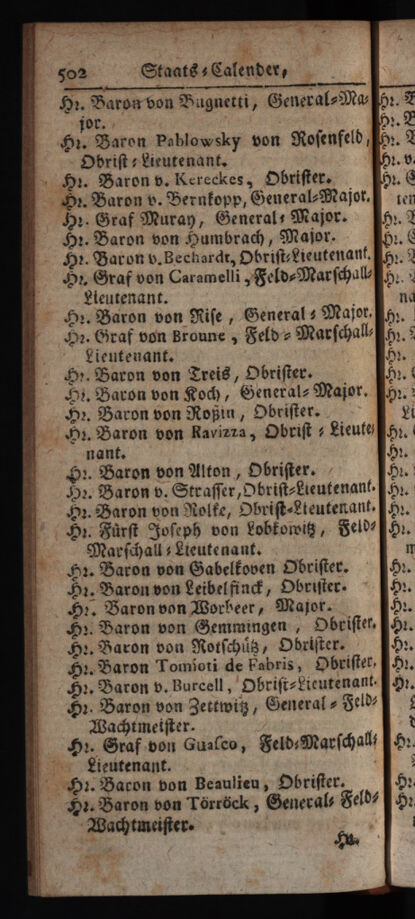 502 Staats-Calender,
Hr. Baron von Bugnetti, General-Ma-
jor.
Hr. Baron Pablowsky von Rosenfeld,
Obrist-Lieutenant.
Hr. Baron v. Kereckes, Obrister.
Hr. Baron v. Bernkopp, General-Major.
Hr. Graf Muray, General-Major.
Hr. Baron von Humbrach, Major.
Hr. Baron v. Bechardt, Obrist-Lieutenant.
Hr. Graf von Caramelli, Feld-Marschall-
Lieutenant.
Hr. Baron von Rise, General-Major.
Hr. Graf von Broune, Feld-Marschall-
Lieutenant.
Hr. Baron von Treis, Obrister.
Hr. Baron von Koch, General-Major.
Hr. Baron von Roßin, Obrister.
Hr. Baron von Ravizza, Obrist-Lieute-
nant.
Hr. Baron von Alton, Obrister.
Hr. Baron v. Strasser, Obrist-Lieutenant.
Hr. Baron von Nolke, Obrist-Lieutenant.
Hr. Fürst Joseph von Lobkowitz, Feld-
Marschall-Lieutenant.
Hr. Baron von Gabelkoven Obrister.
Hr. Baron von Leibelfinck, Obrister.
Hr. Baron von Worbeer, Major.
Hr. Baron von Gemmingen, Obrister.
Hr. Baron von Rotschütz, Obrister.
Hr. Baron Tomioti de Fabris, Obrister.
Hr. Baron v. Burcell, Obrist-Lieutenant.
Hr. Baron von Zettwitz, General-Feld-
Wachtmeister.
Hr. Graf von Guasco, Feld-Marschall-
Lieutenant.
Hr. Baron von Beaulieu, Obrister.
Hr. Baron von Törröck, General-Feld-
Wachtmeister.
Hr.